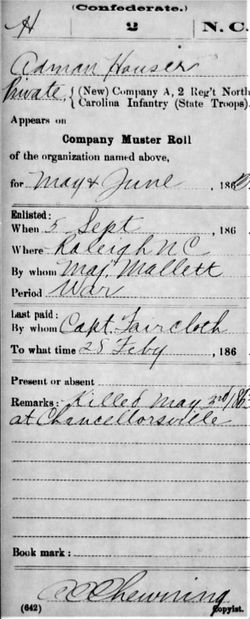 (Confederate.)
H 2 N. C.
Adman Houser
Private, (New) Company A, 2 Reg't North
Carolina Infantry (State Troops).
Appears on
Company Muster Roll
of the organization named above,
for May & June, 186
Enlisted:
When 5 Sept, 186
Where Raleigh N C
By whom Maj. Mallett
Period War
Last paid:
By whom Capt. Faircloth
To what time 28 Feby, 186
Present or absent
Remarks: Killed May 3rd/63
at Chancellorsville
Book mark:
Chewning
(642) Copyist.